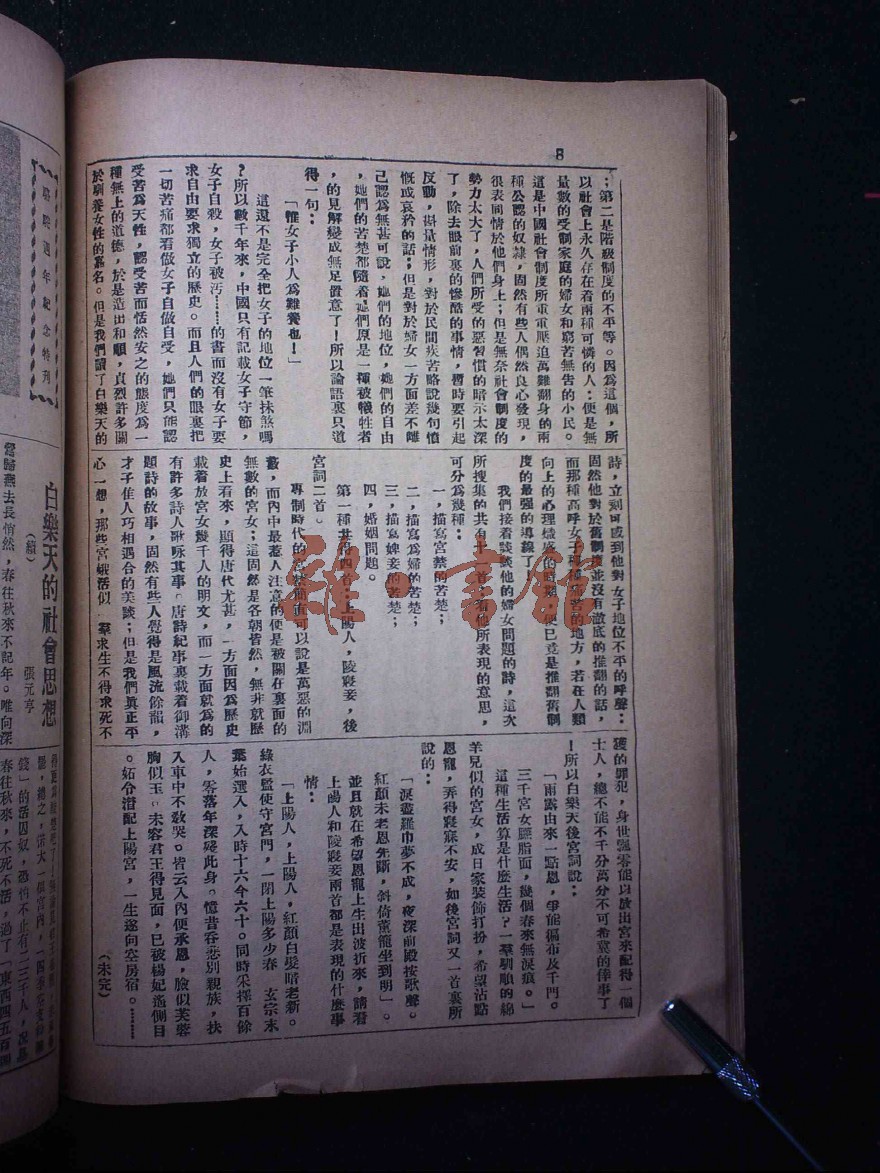 8
；第二是階級制度的不平等。因爲這個，所
以社會上永久存在着兩種可憐的人：便是無
量數的受制家庭的婦女和窮苦無告的小民。
這是中國社會制度所重重壓迫萬難翻身的兩
種公認的奴隸，固然有些人偶然良心發現，
很表同情於他們身上；但是無奈社會制度的
勢力太大了，人們所受的惡習慣的暗示太深
了，除去眼前裏的慘酷的事情，暫時要引起
反動，揣量情形，對於民間疾苦略說幾句憤
慨或哀矜的話；但是對於婦女一方面差不唯
己認爲無甚可說，她們的地位，她們的自由
，她們的苦楚都隨着她們原是一種被犧牲者
，的見解變成無足置意了！所以論語裏只道
得一句：
「惟女子小人爲難養也！」
這還不是完全把女子的地位一筆抹煞嗎
？所以數千年來，中國只有記載女子守節，
女子自殺，女子被污……的書而沒有女子要
求自由要求獨立的歷史。而且人們的眼裏把
一切苦痛都看做女子自做自受，她們只能認
受苦爲天性，認受苦而恬然安之的態度爲一
種無上的道德，於是造出和順，貞烈許多關
於馴養女性的嘉名。但是我們讀了白樂天的
詩，立刻可感到他對女子地位不平的呼聲：
固然他對於舊制度並沒有澈底的推翻的話，
而那種高呼女子種種痛苦的地方，若在人類
向上的心理熾盛的時期，便已竟是推翻舊制
度的最强的導線了。
我們接着談談他的婦女問題的詩，這次
所搜集的共有十一首：看他所表現的意思，
可分爲幾種：
一，描寫宮禁的苦楚；
二，描寫爲婦的苦楚；
三，描寫婢妾的苦楚；
四，婚姻問題。
第一種共得四首：上陽人，陵寢妾，後
宮詞二首。
專制時代的宮禁簡直可以說是萬惡的淵
藪，而內中最惹人注意的便是被關在裏面的
無數的宮女；這固然是各朝皆然，無非就歷
史上看來，顯得唐代尤甚，一方面因爲歷史
載着放宮女幾千人的明文，而一方面就爲的
有許多詩人歌咏其事。唐詩紀事裏載着御溝
題詩的故事，固然有些人覺得是風流餘韻，
才子佳人巧相遇合的美談；但是我們眞正平
心一想，那些宮娥活似一羣求生不得求死不
獲的罪犯，身世飄零能以放出宮來配得一個
士人，總不能不千分萬分不可希冀的倖事了
！所以白樂天後宮詞說：
「雨露由來一點恩，爭能徧布及千門。
三千宮女臙脂面，幾個春來無淚痕。」
這種生活算是什麼生活？一羣馴順的綿
羊兒似的宮女，成日家裝飾打扮，希望沾點
恩寵，弄得寢寐不安，如後宮詞又一首裏所
說的：
「淚盡羅巾夢不成，夜深前殿按歌聲。
紅顏未老恩先斷，斜倚薰籠坐到明」。
並且就在希望恩寵上生出波折來，請看
上陽人和陵寢妾兩首都是表現的什麼事
情：
「上陽人，上陽人，紅顏白髮暗老新。
綠衣監使守宮門，一閉上陽多少春 玄宗末
葉始選入，入時十六今六十。同時采擇百餘
人，零落年深殘此身。憶昔吞悲別親族，扶
入車中不敎哭。皆云入內便承恩，臉似芙蓉
胸似玉。未容君王得見面，已被楊妃遙側目
。妬令潛配上陽宮，一生遂向空房宿。……
（未完）
週年紀念特刊
白樂天的社會思想
（續）
張元亨
鶯歸燕去長悄然，春往秋來不記年。唯向深
春往秋來，不死不活，過了「東西四五百回